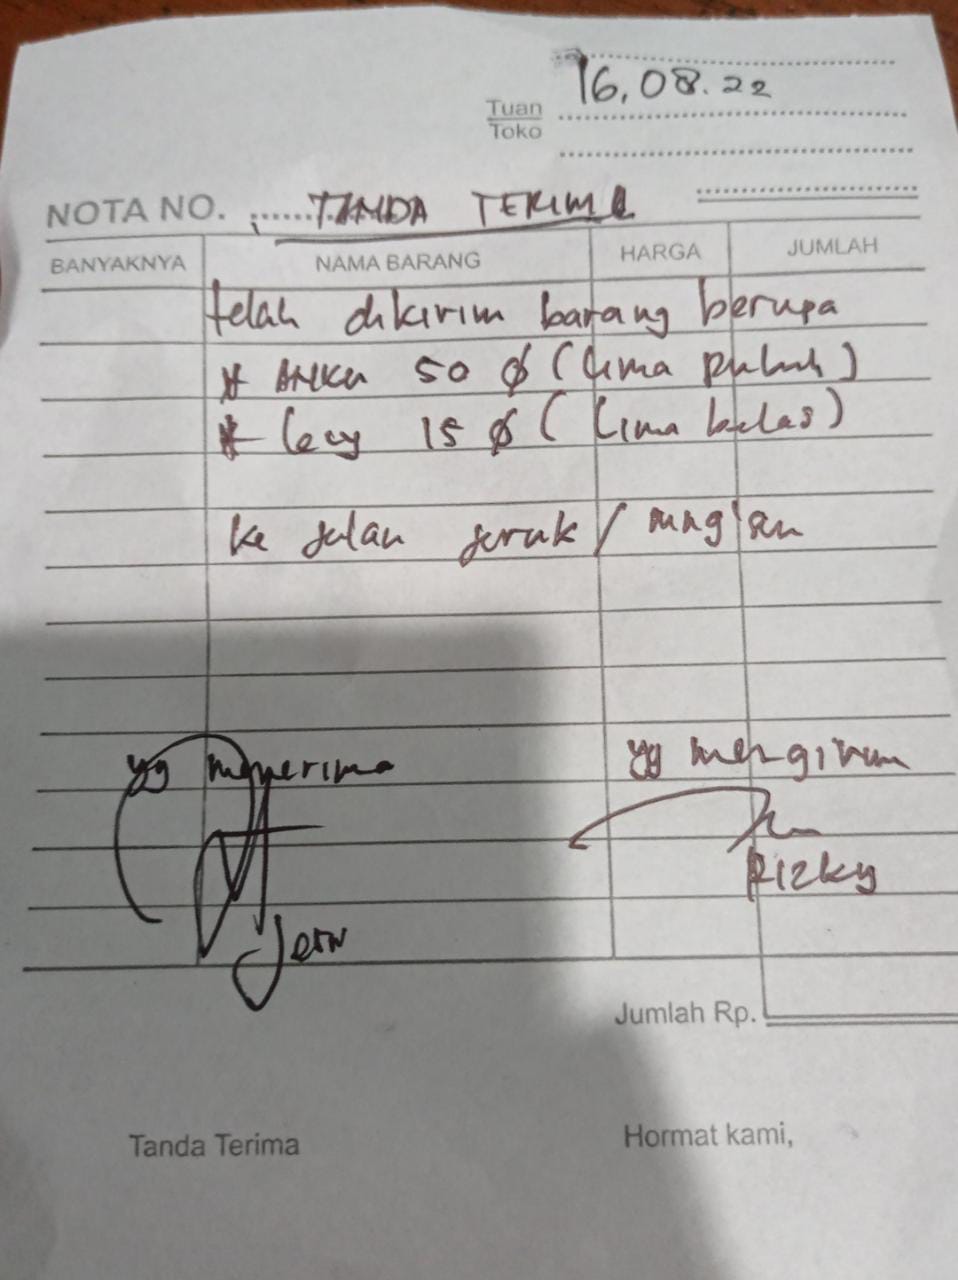 16.08.22
Tuan
Toko
NOTA NO. TANDA TERIMA
BANYAKNYA NAMA BARANG HARGA JUMLAH
telah dikirim barang berupa
* 50 ∅ (lima puluh)
* 15 ∅ (lima belas)
ke jalan jeruk /
yg menerima yg mengirim
Rizky
Jumlah Rp.
Tanda Terima Hormat kami,